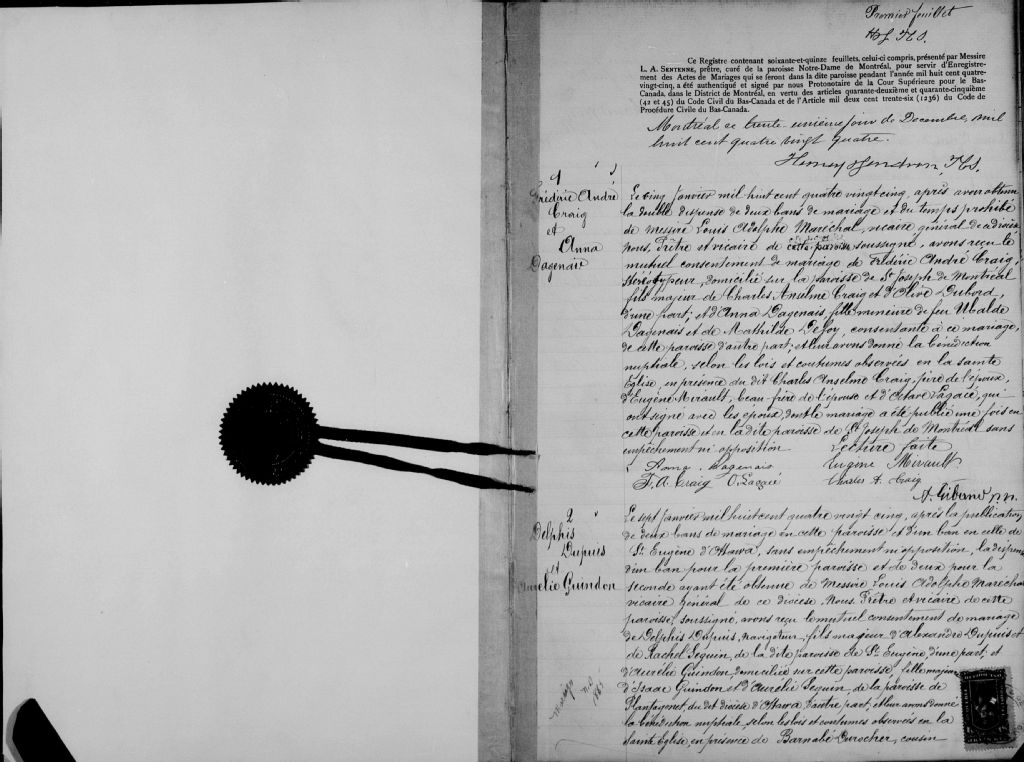 Premier feuillet
Ce Registre contenant soixante-et-quinze feuillets, celui-ci compris, présenté par Messire
L. A. SENTENNE, prêtre, curé de la paroisse Notre-Dame de Montréal, pour servir d'Enregistre-
ment des Actes de Mariages qui se feront dans la dite paroisse pendant l'année mil huit cent quatre-
vingt-cinq, a été authentiqué et signé par nous Protonotaire de la Cour Supérieure pour le Bas-
Canada, dans le District de Montréal, en vertu des articles quarante-deuxième et quarante-cinquième
(42 et 45) du Code Civil du Bas-Canada et de l'Article mil deux cent trente-six (1236) du Code de
Procédure Civile du Bas-Canada.
Montréal ce trente-unième jour de Decembre, mil
huit cent quatre vingt quatre.
1
Frédéric André
Craig
et
Anna
Dagenais
Le cinq Janvier mil huit cent quatre vingt cinq, après avoir obtenu
la double dispense de deux bans de mariage et du temps prohibé
de Messire Louis Adolphe Maréchal, vicaire général de ce diocèse
Nous, Prêtre et vicaire de cette paroisse soussigné, avons reçu le
mutuel consentement de mariage de Frédéric André Craig,
stéréotypeur, domicilié sur la paroisse de St Joseph de Montréal
fils majeur de Charles Anselme Craig et d'Olive Dubord,
d'une part; et d'Anna Dagenais, fille mineure de feu Ubalde
Dagenais et de Mathilde Defoy, consentante à ce mariage,
de cette paroisse d'autre part; et leur avons donné la bénédiction
nuptiale, selon les lois et coutumes observées en la sainte
Eglise, en présence du dit Charles Anselme Craig, père de l'époux,
d'Eugène Mirault, beau-frère de l'épouse et d'Octave Lagacé, qui
ont signé avec les époux, dont le mariage a été publié une fois en
cette paroisse et en la dite paroisse de St Joseph de Montréal sans
empêchement ni opposition Lecture faite
Anna Dagenais Eugène Mirault
F. A. Craig O. Lagacé Charles A. Craig
2
Delphis
Dupuis
et
Aurélie Guindon
Le sept Janvier mil huit cent quatre vingt cinq, après la publication
de deux bans de mariage en cette paroisse et d'un ban en celle de
St Eugène d'Ottawa, sans empêchement ni opposition, la dispense
d'un ban pour la première paroisse et de deux pour la
seconde ayant été obtenue de Messire Louis Adolphe Maréchal
vicaire général de ce diocèse, Nous, Prêtre et vicaire de cette
paroisse, soussigné, avons reçu le mutuel consentement de mariage
de Delphis Dupuis, navigateur, fils majeur d'Alexandre Dupuis et
de Rachel Seguin, de la dite paroisse de St Eugène, d'une part; et
d'Aurélie Guindon, domiciliée sur cette paroisse, fille majeure
d'Isaac Guindon et d'Aurélie Seguin, de la paroisse de
Plantagenet, du dit diocèse d'Ottawa, d'autre part, et leur avons donné
la bénédiction nuptiale, selon les lois et coutumes observées en la
Sainte Eglise, en présence de Barnabé Durocher, cousin